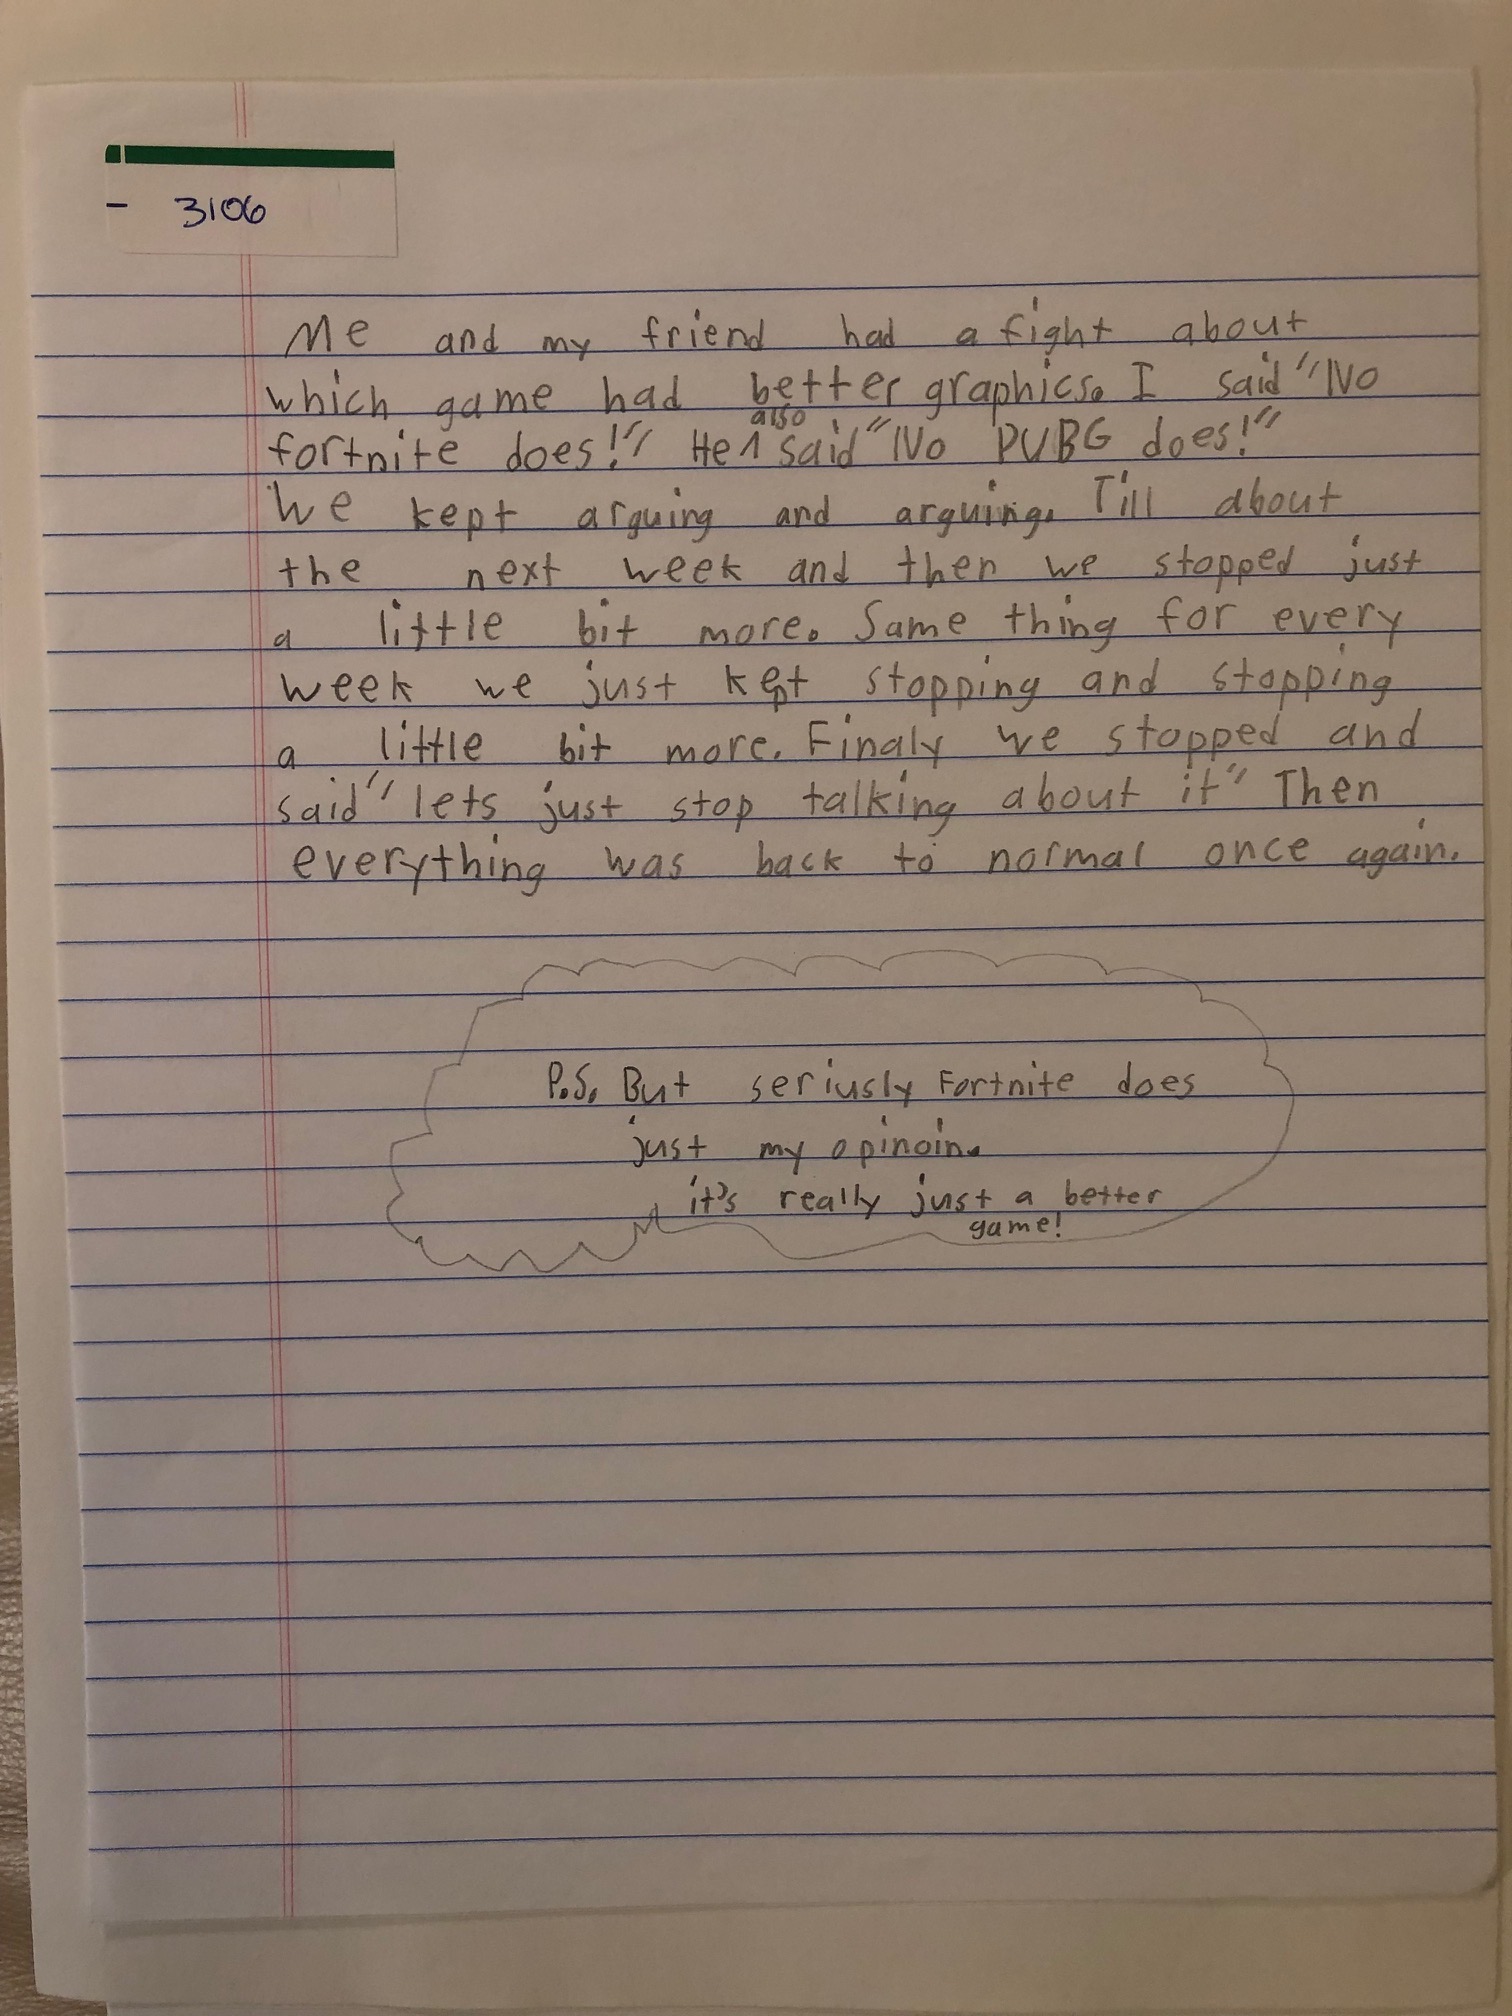 - 3106
Me and my friend had a fight about
which game had better graphics. I said "No
fortnite does!" He ^ also said "No PUBG does!"
We kept arguing and arguing. Till about
the next week and then we stopped just
a little bit more. Same thing for every
week we just kept stopping and stopping
a little bit more. Finaly we stopped and
said "lets just stop talking about it" Then
everything was back to normal once again.
P.S. But seriusly Fortnite does
just my opinoin.
it's really just a better
game!